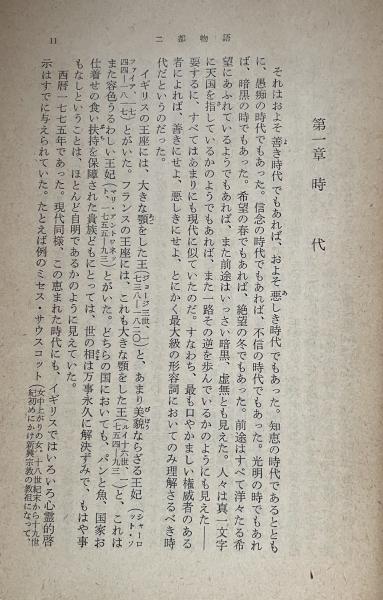 11　二都物語
第一章　時代
それはおよそ善き時代でもあれば、およそ悪しき時代でもあった。知恵の時代であるととも
に、愚痴の時代でもあった。信念の時代でもあれば、不信の時代でもあった。光明の時でもあれ
ば、暗黒の時でもあった。希望の春でもあれば、絶望の冬でもあった。前途はすべて洋々たる希
望にあふれているようでもあれば、また前途はいっさい暗黒、虚無とも見えた。人々は真一文字
に天国を指しているかのようでもあれば、また一路その逆を歩んでいるかのようにも見えた――
要するに、すべてはあまりにも現代に似ていたのだ。すなわち、最も口やかましい権威者のある
者によれば、善きにせよ、悪しきにせよ、とにかく最大級の形容詞においてのみ理解さるべき時
代だというのだった。
イギリスの王座には、大きな顎をした王（ジョージ三世、一七三八―一八二〇）と、あまり美貌ならざる王妃（シャーロット・ソ
ファイア、一七四四―一八一七）とがいた。フランスの王座には、これも大きな顎をした王（ルイ十六世、一七五四―九三）と、これは
また容色うるわしい王妃（マリ・アントワネット、一七五五―九三）とがいた。どちらの国においても、パンと魚、国家お
仕着せの食い扶持を保障された貴族どもにとっては、世の相は万事永久に解決ずみで、もはや事
もなしということは、ほとんど自明であるかのように見えていた。
西暦一七七五年であった。現代同様、この恵まれた時代にも、イギリスではいろいろ心霊的啓
示はすでに与えられていた。たとえば例のミセス・サウスコット（女中上がりの女、十八世紀末から十九世紀初めにかけ新興宗教の教祖になって、